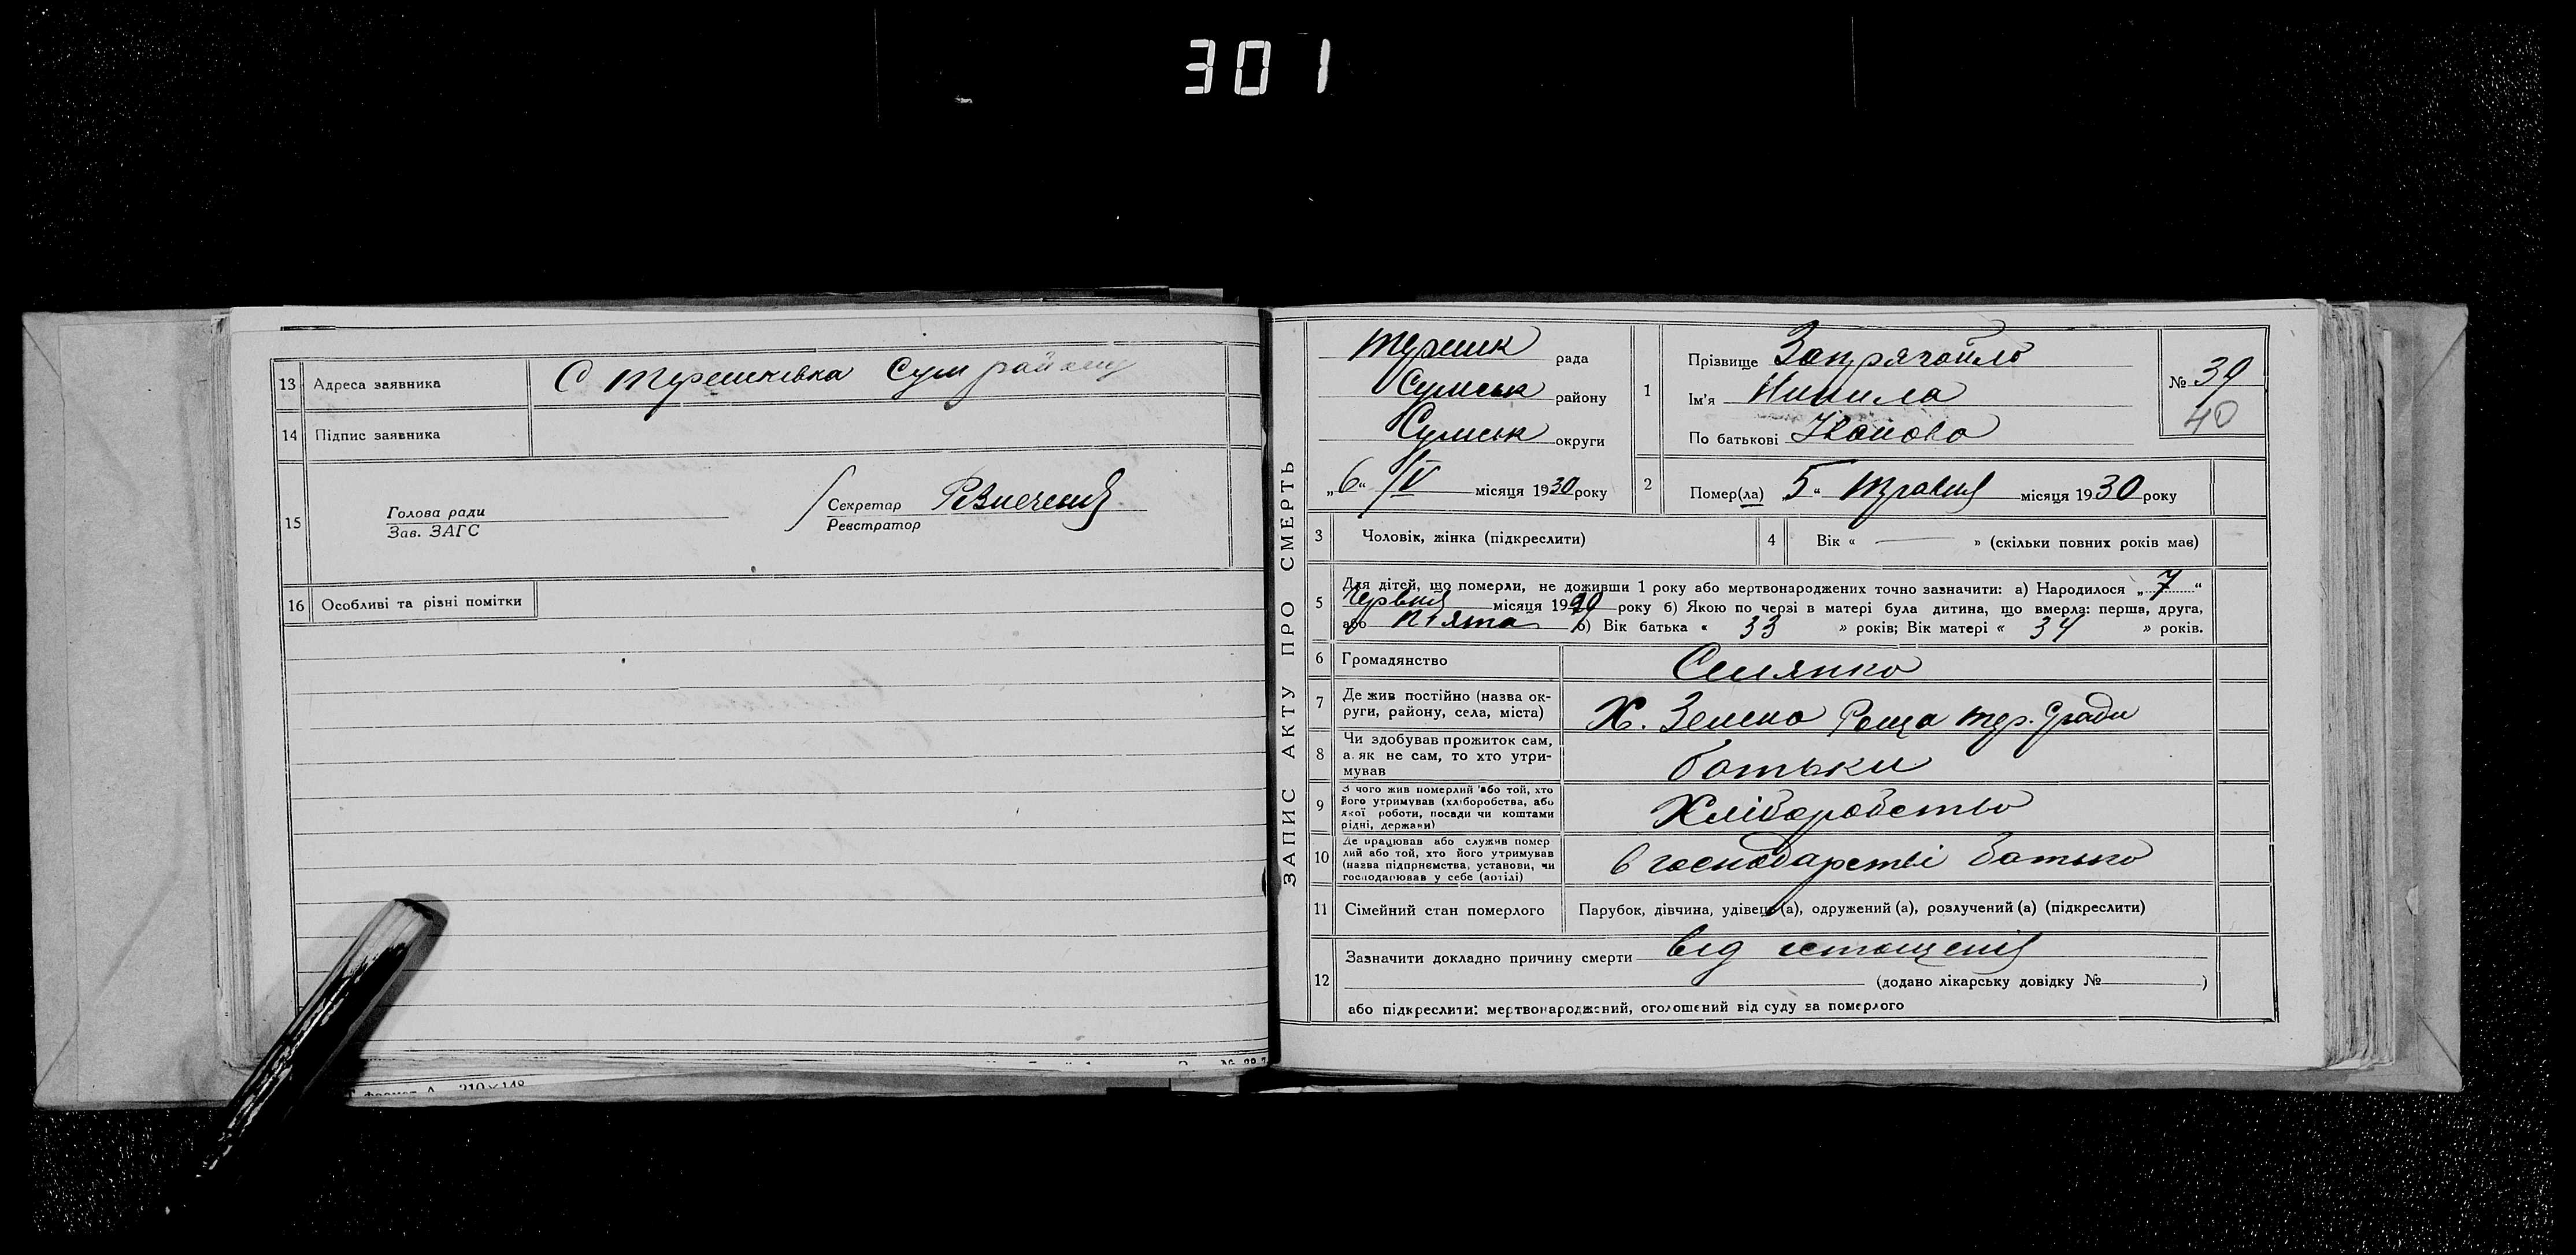 301
13 Адреса заявника С Терешківка Сум району
14 Підпис заявника
15 Голова ради
Зав. ЗАГС
Секретар
Реєстратор
16 Особливі та різні помітки
Формат А 210×148
ЗАПИС АКТУ ПРО СМЕРТЬ
Терешк рада
Сумськ району
Сумськ округи
„6“ /V місяця 1930 року
1 Прізвище Запрягайло
Ім'я
По батькові Іванова
№ 39
40
2 Помер(ла) „5“ Травня місяця 1930 року
3 Чоловік, жінка (підкреслити)
4 Вік « — » (скільки повних років має)
5 Для дітей, що померли, не доживши 1 року або мертвонароджених точно зазначити: а) Народилося „7“
Червня місяця 19 року б) Якою по черзі в матері була дитина, що вмерла: перша, друга,
або п'ята в) Вік батька « 33 » років; Вік матері « 34 » років.
6 Громадянство Селянка
7 Де жив постійно (назва ок-
руги, району, села, міста) Х. Зелена Роща Тер. С/ради
8 Чи здобував прожиток сам,
а як не сам, то хто утри-
мував батьки
9 З чого жив померлий або той, хто
його утримував (хліборобства, або
якої роботи, посади чи коштами
рідні, держави) Хліборобство
10 Де працював або служив помер
лий або той, хто його утримував
(назва підприємства, установи, чи
господарював у себе (артілі) в господарстві батька
11 Сімейний стан померлого Парубок, дівчина, удівець (а), одружений (а), розлучений (а) (підкреслити)
12 Зазначити докладно причину смерти від истощенія
(додано лікарську довідку № )
або підкреслити: мертвонароджений, оголошений від суду за померлого